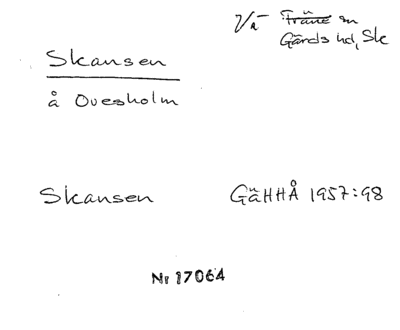 Vä Träne sn
Gärds hd, Sk
Skansen
å Ovesholm
Skansen GäHHÅ 1957:98
Nr 17064